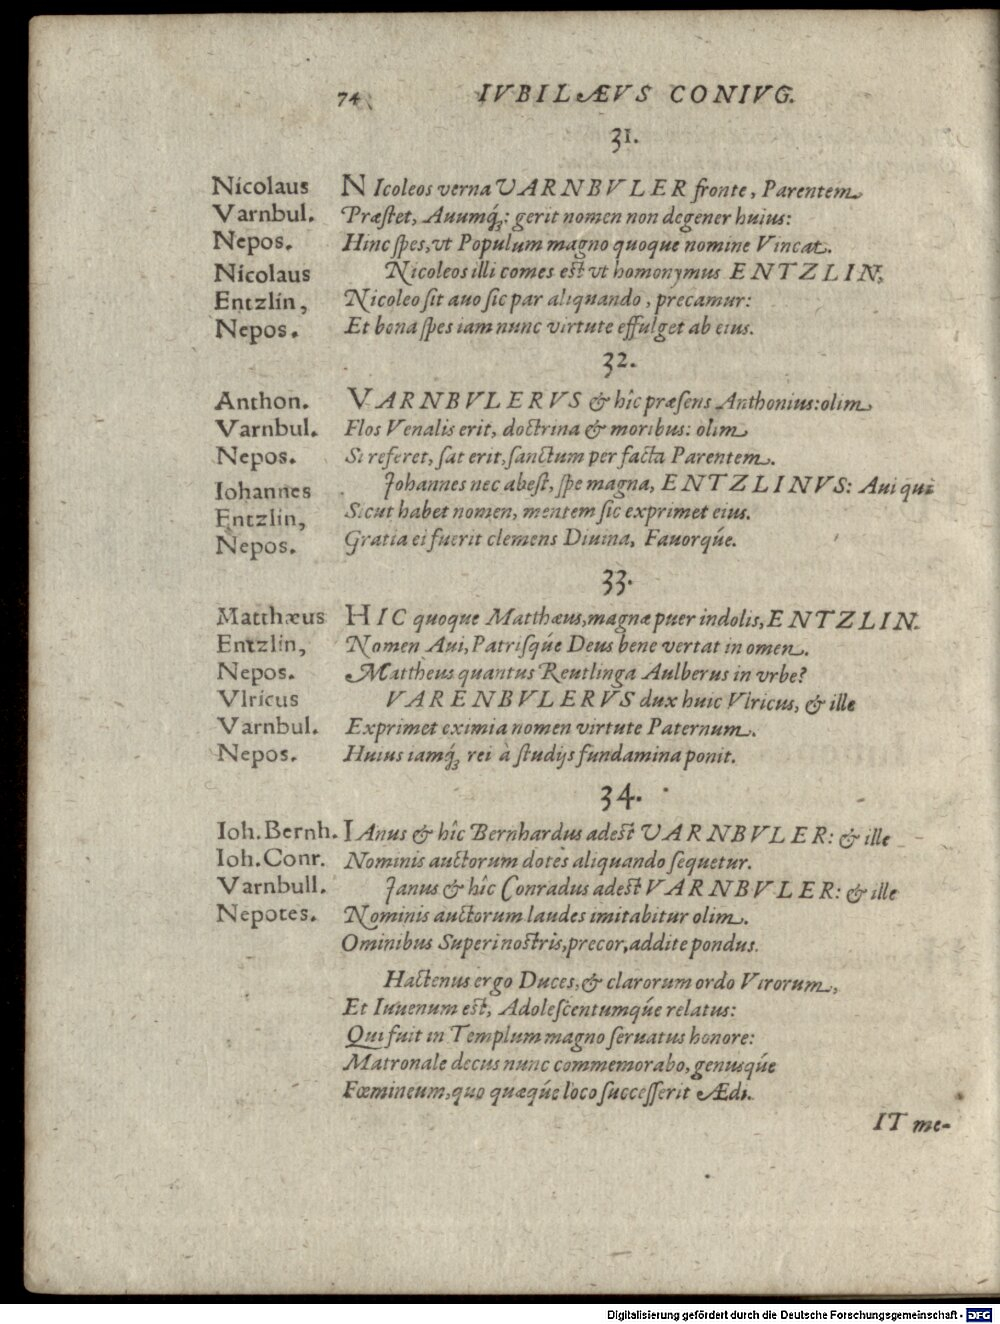 74 IVBILÆVS CONIVG.
31.
Nicolaus NIcoleos verna VARNBVLER fronte, Parentem
Varnbul. Præstet, Auumq́;: gerit nomen non degener huius:
Nepos. Hinc spes, vt Populum magno quoque nomine Vincat.
Nicolaus Nicoleos illi comes est vt homonymus ENTZLIN,
Entzlin, Nicoleo sit auo sic par aliquando, precamur:
Nepos. Et bona spes iam nunc virtute effulget ab eius.
32.
Anthon. VARNBVLERVS & hîc præsens Anthonius: olim
Varnbul. Flos Venalis erit, doctrina & moribus: olim
Nepos. Si referet, sat erit, sanctum per facta Parentem.
Iohannes Johannes nec abest, spe magna, ENTZLINVS: Aui qui
Entzlin, Sicut habet nomen, mentem sic exprimet eius.
Nepos. Gratia ei fuerit clemens Diuina, Fauorqúe.
33.
Matthæus HIC quoque Matthæus, magnæ puer indolis, ENTZLIN.
Entzlin, Nomen Aui, Patrisqúe Deus bene vertat in omen.
Nepos. Mattheus quantus Reutlinga Aulberus in vrbe?
Vlricus VARENBVLERVS dux huic Vlricus, & ille
Varnbul. Exprimet eximia nomen virtute Paternum.
Nepos. Huius iamq́; rei à studijs fundamina ponit.
34.
Ioh. Bernh. IAnus & hîc Bernhardus adest VARNBVLER: & ille
Ioh. Conr. Nominis auctorum dotes aliquando sequetur.
Varnbull. Janus & hîc Conradus adest VARNBVLER: & ille
Nepotes. Nominis auctorum laudes imitabitur olim.
Ominibus Superi nostris, precor, addite pondus.
Hactenus ergo Duces, & clarorum ordo Virorum,
Et Iuuenum est, Adolescentumqúe relatus:
Qui fuit in Templum magno seruatus honore:
Matronale decus nunc commemorabo, genusqúe
Fœmineum, quo quæqúe loco successerit Ædi.
IT me-
Digitalisierung gefördert durch die Deutsche Forschungsgemeinschaft - DFG